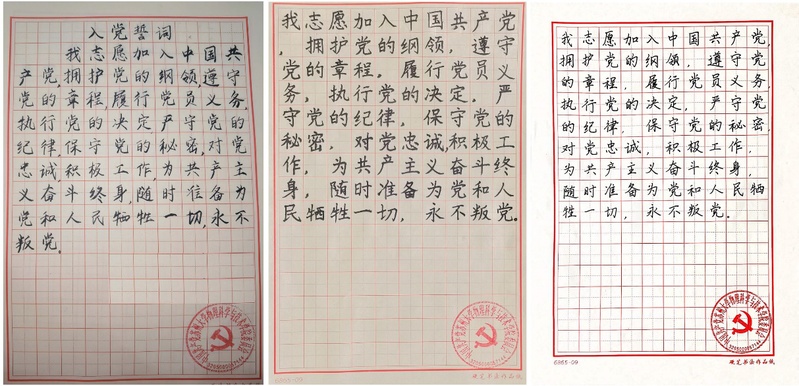 入党誓词
我志愿加入中国共
产党,拥护党的纲领,遵守
党的章程,履行党员义务,
执行党的决定,严守党的
纪律,保守党的秘密,对党
忠诚积极工作,为共产主
义奋斗终身,随时准备为
党和人民牺牲一切,永不
叛党。
我志愿加入中国共产党
,拥护党的纲领,遵守
党的章程,履行党员义
务,执行党的决定,严
守党的纪律,保守党的
秘密,对党忠诚,积极工
作,为共产主义奋斗终
身,随时准备为党和人
民牺牲一切,永不叛党。
硬笔书法作品纸
我志愿加入中国共产党,
拥护党的纲领,遵守党
的章程,履行党员义务,
执行党的决定,严守党
的纪律,保守党的秘密,
对党忠诚,积极工作,
为共产主义奋斗终身,
随时准备为党和人民牺
牲一切,永不叛党。
6865-09
硬笔书法作品纸